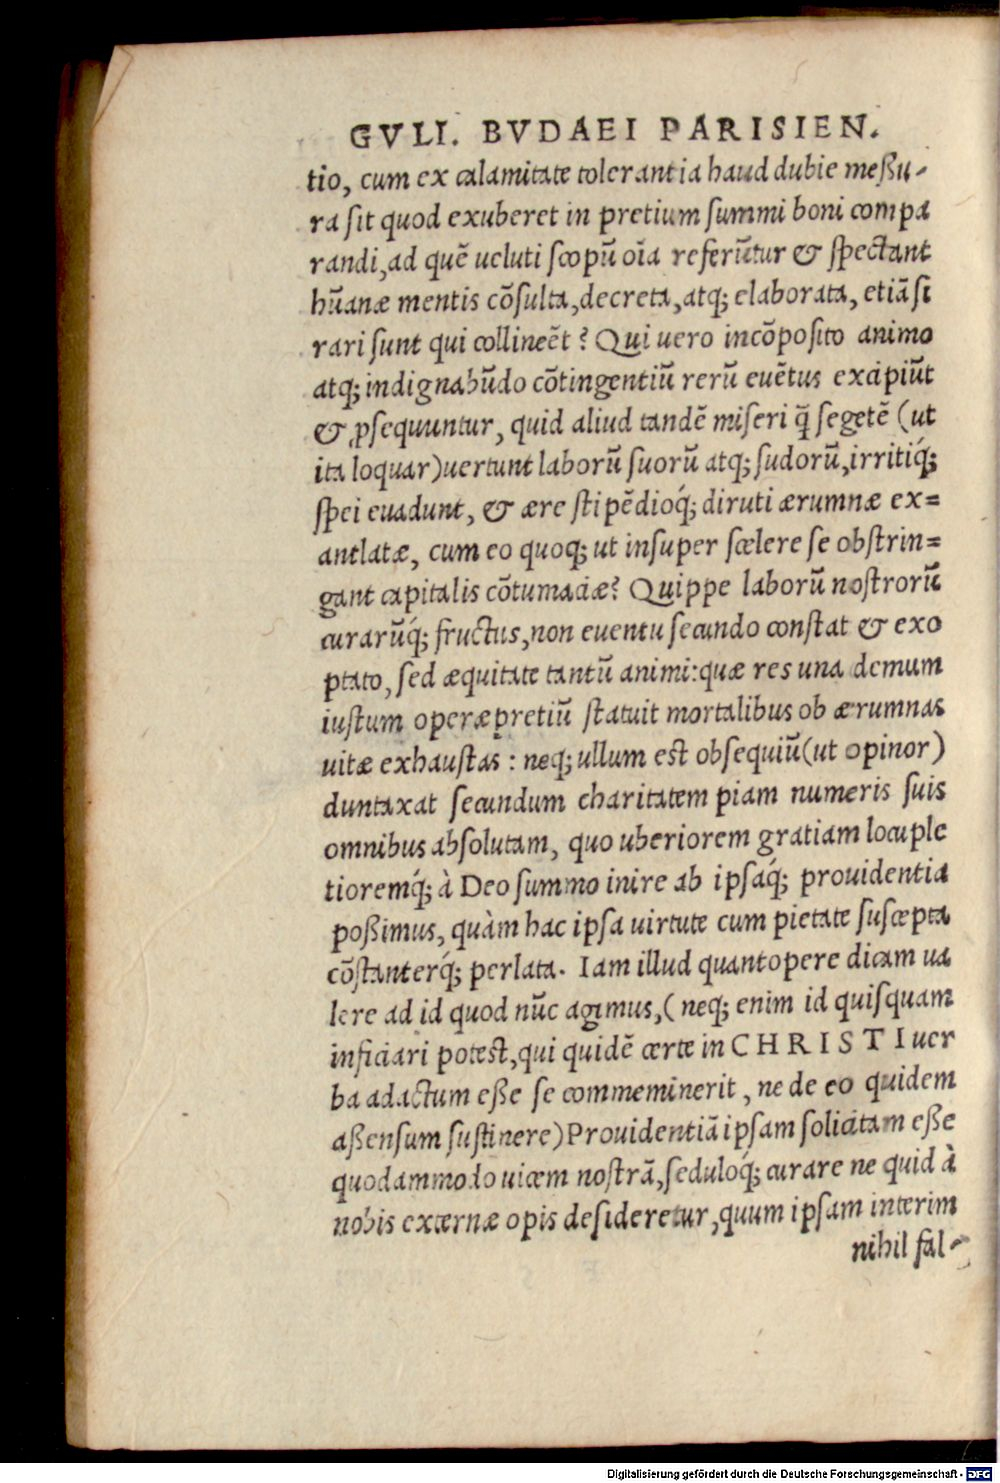 GVLI. BVDAEI PARISIEN.
tio, cum ex calamitate tolerantia haud dubie meßu-
ra sit quod exuberet in pretium summi boni compa
randi, ad quē ueluti scopū oīa referūtur & spectant
hūanæ mentis cōsulta, decreta, atq; elaborata, etiā si
rari sunt qui collineēt? Qui uero incōposito animo
atq; indignabūdo cōtingentiū rerū euētus excipiūt
& ꝓsequuntur, quid aliud tandē miseri q̃ segetē (ut
ita loquar) uertunt laborū suorū atq; sudorū, irritiq́;
spei euadunt, & ære stipēdioq́; diruti ærumnæ ex=
antlatæ, cum eo quoq; ut insuper scelere se obstrin=
gant capitalis cōtumaciæ? Quippe laborū nostrorū
curarūq́; fructus, non euentu secundo constat & exo
ptato, sed æquitate tantū animi: quæ res una demum
iustum operæpretiū statuit mortalibus ob ærumnas
uitæ exhaustas: neq; ullum est obsequiū (ut opinor)
duntaxat secundum charitatem piam numeris suis
omnibus absolutam, quo uberiorem gratiam locuple
tioremq́; à Deo summo inire ab ipsaq́; prouidentia
poßimus, quàm hac ipsa uirtute cum pietate suscepta
cōstanterq́; perlata. Iam illud quantopere dicam ua
lere ad id quod nūc agimus, (neq; enim id quisquam
inficiari potest, qui quidē certe in CHRISTI uer
ba adactum eße se commeminerit, ne de eo quidem
aßensum sustinere) Prouidentiā ipsam solicitam eße
quodammodo uicem nostrā, seduloq́; curare ne quid à
nobis externæ opis desideretur, quum ipsam interim
nihil fal-
Digitalisierung gefördert durch die Deutsche Forschungsgemeinschaft - DFG